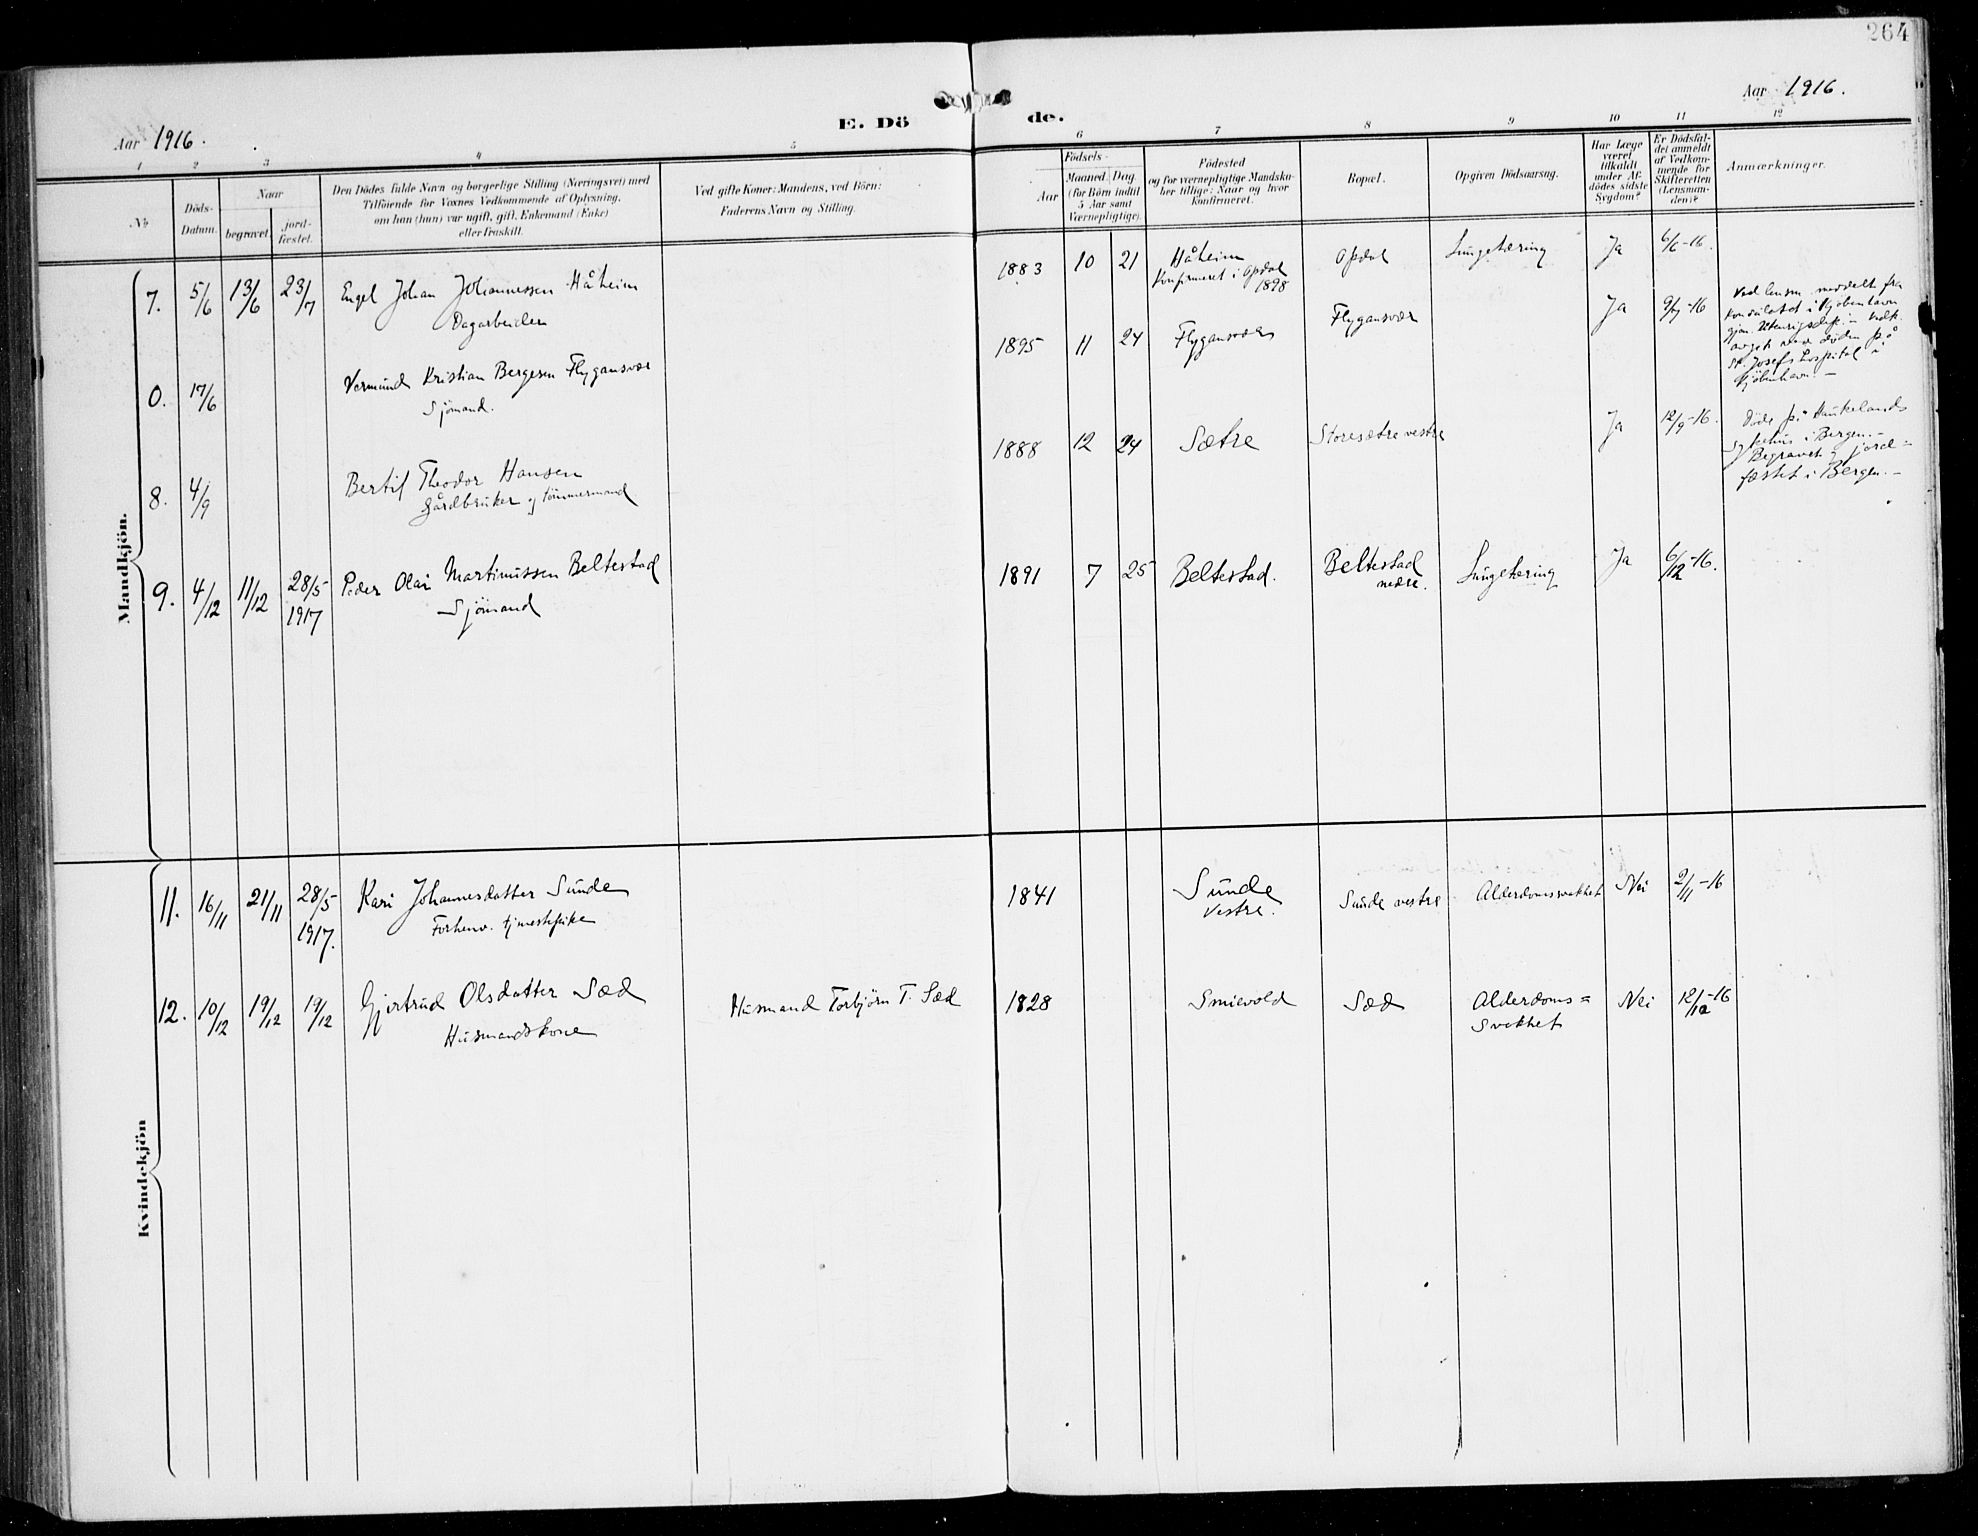 264
Aar 1916.
E. Dö
de.
Aar 1916.
1 2 3 4 5 6 7 8 9 10 11 12
No
Döds-
Datum.
Naar
begravet.
jord-
fæstet.
Den Dödes fulde Navn og borgerlige Stilling (Næringsvei) med
Tilföiende for Voxnes Vedkommende af Oplysning,
om han (hun) var ugift, gift, Enkemand (Enke)
eller fraskilt.
Ved gifte Koner: Mandens, ved Börn:
Faderens Navn og Stilling.
Födsels-
Aar
Maaned. Dag
(for Börn indtil
5 Aar samt
Værnepligtige).
Födested
og for værnepligtige Mandska-
ber tillige: Naar og hvor
Konfirmeret.
Bopæl.
Opgiven Dödsaarsag.
Har Læge
været
tilkaldt
under Af-
dödes sidste
Sygdom?
Er Dödsfal-
det anmeldt
af Vedkom-
mende for
Skifteretten
(Lensman-
den)?
Anmærkninger.
Mandkjön.
7. 5/6 13/6 23/7 Engel Johan Johannessen Håheim
Dagarbeider
1883 10 21 Håheim
Konfirmeret i Opdal
1898
Opdal Lungetæring Ja 6/6-16.
0. 17/6 Vermund Kristian Bergesen Flygansvær
Sjömand.
1895 11 24 Flygansvær Flygansvær Ja 9/7-16
Ved lensm. meddelt fra
Konsulatet i Kjöbenhavn
gjen. Utenrigsdep. - Vedk.
avgik ved döden på
St. Josefs Hospital i
Kjöbenhavn. -
8. 4/9 Bertil Theodor Hansen
Gårdbruker og tömmermand
1888 12 24 Sætre Storesætre vestre Ja 12/9-16.
Döde på Haukelands
Sykehus i Bergen. -
Begravet og jord=
fæstet i Bergen. -
9. 4/12 11/12 28/5 1917 Peder Olai Martinussen Beltestad
Sjömand
1891 7 25 Beltestad. Beltestad
nedre.
Lungetæring Ja 6/12-16.
Kvindekjön
11. 16/11 21/11 28/5 1917. Kari Johannesdatter Sunde
Forhenv. tjenestepike
1841 Sunde
Vestre.
Sunde vestre Alderdomssvekhet Nei 2/11-16
12. 10/12 19/12 19/12 Gjertrud Olsdatter Sæd
Husmandskone
Husmand Torbjörn T. Sæd 1828 Smievold Sæd Alderdoms=
svekhet
Nei 12/12-16